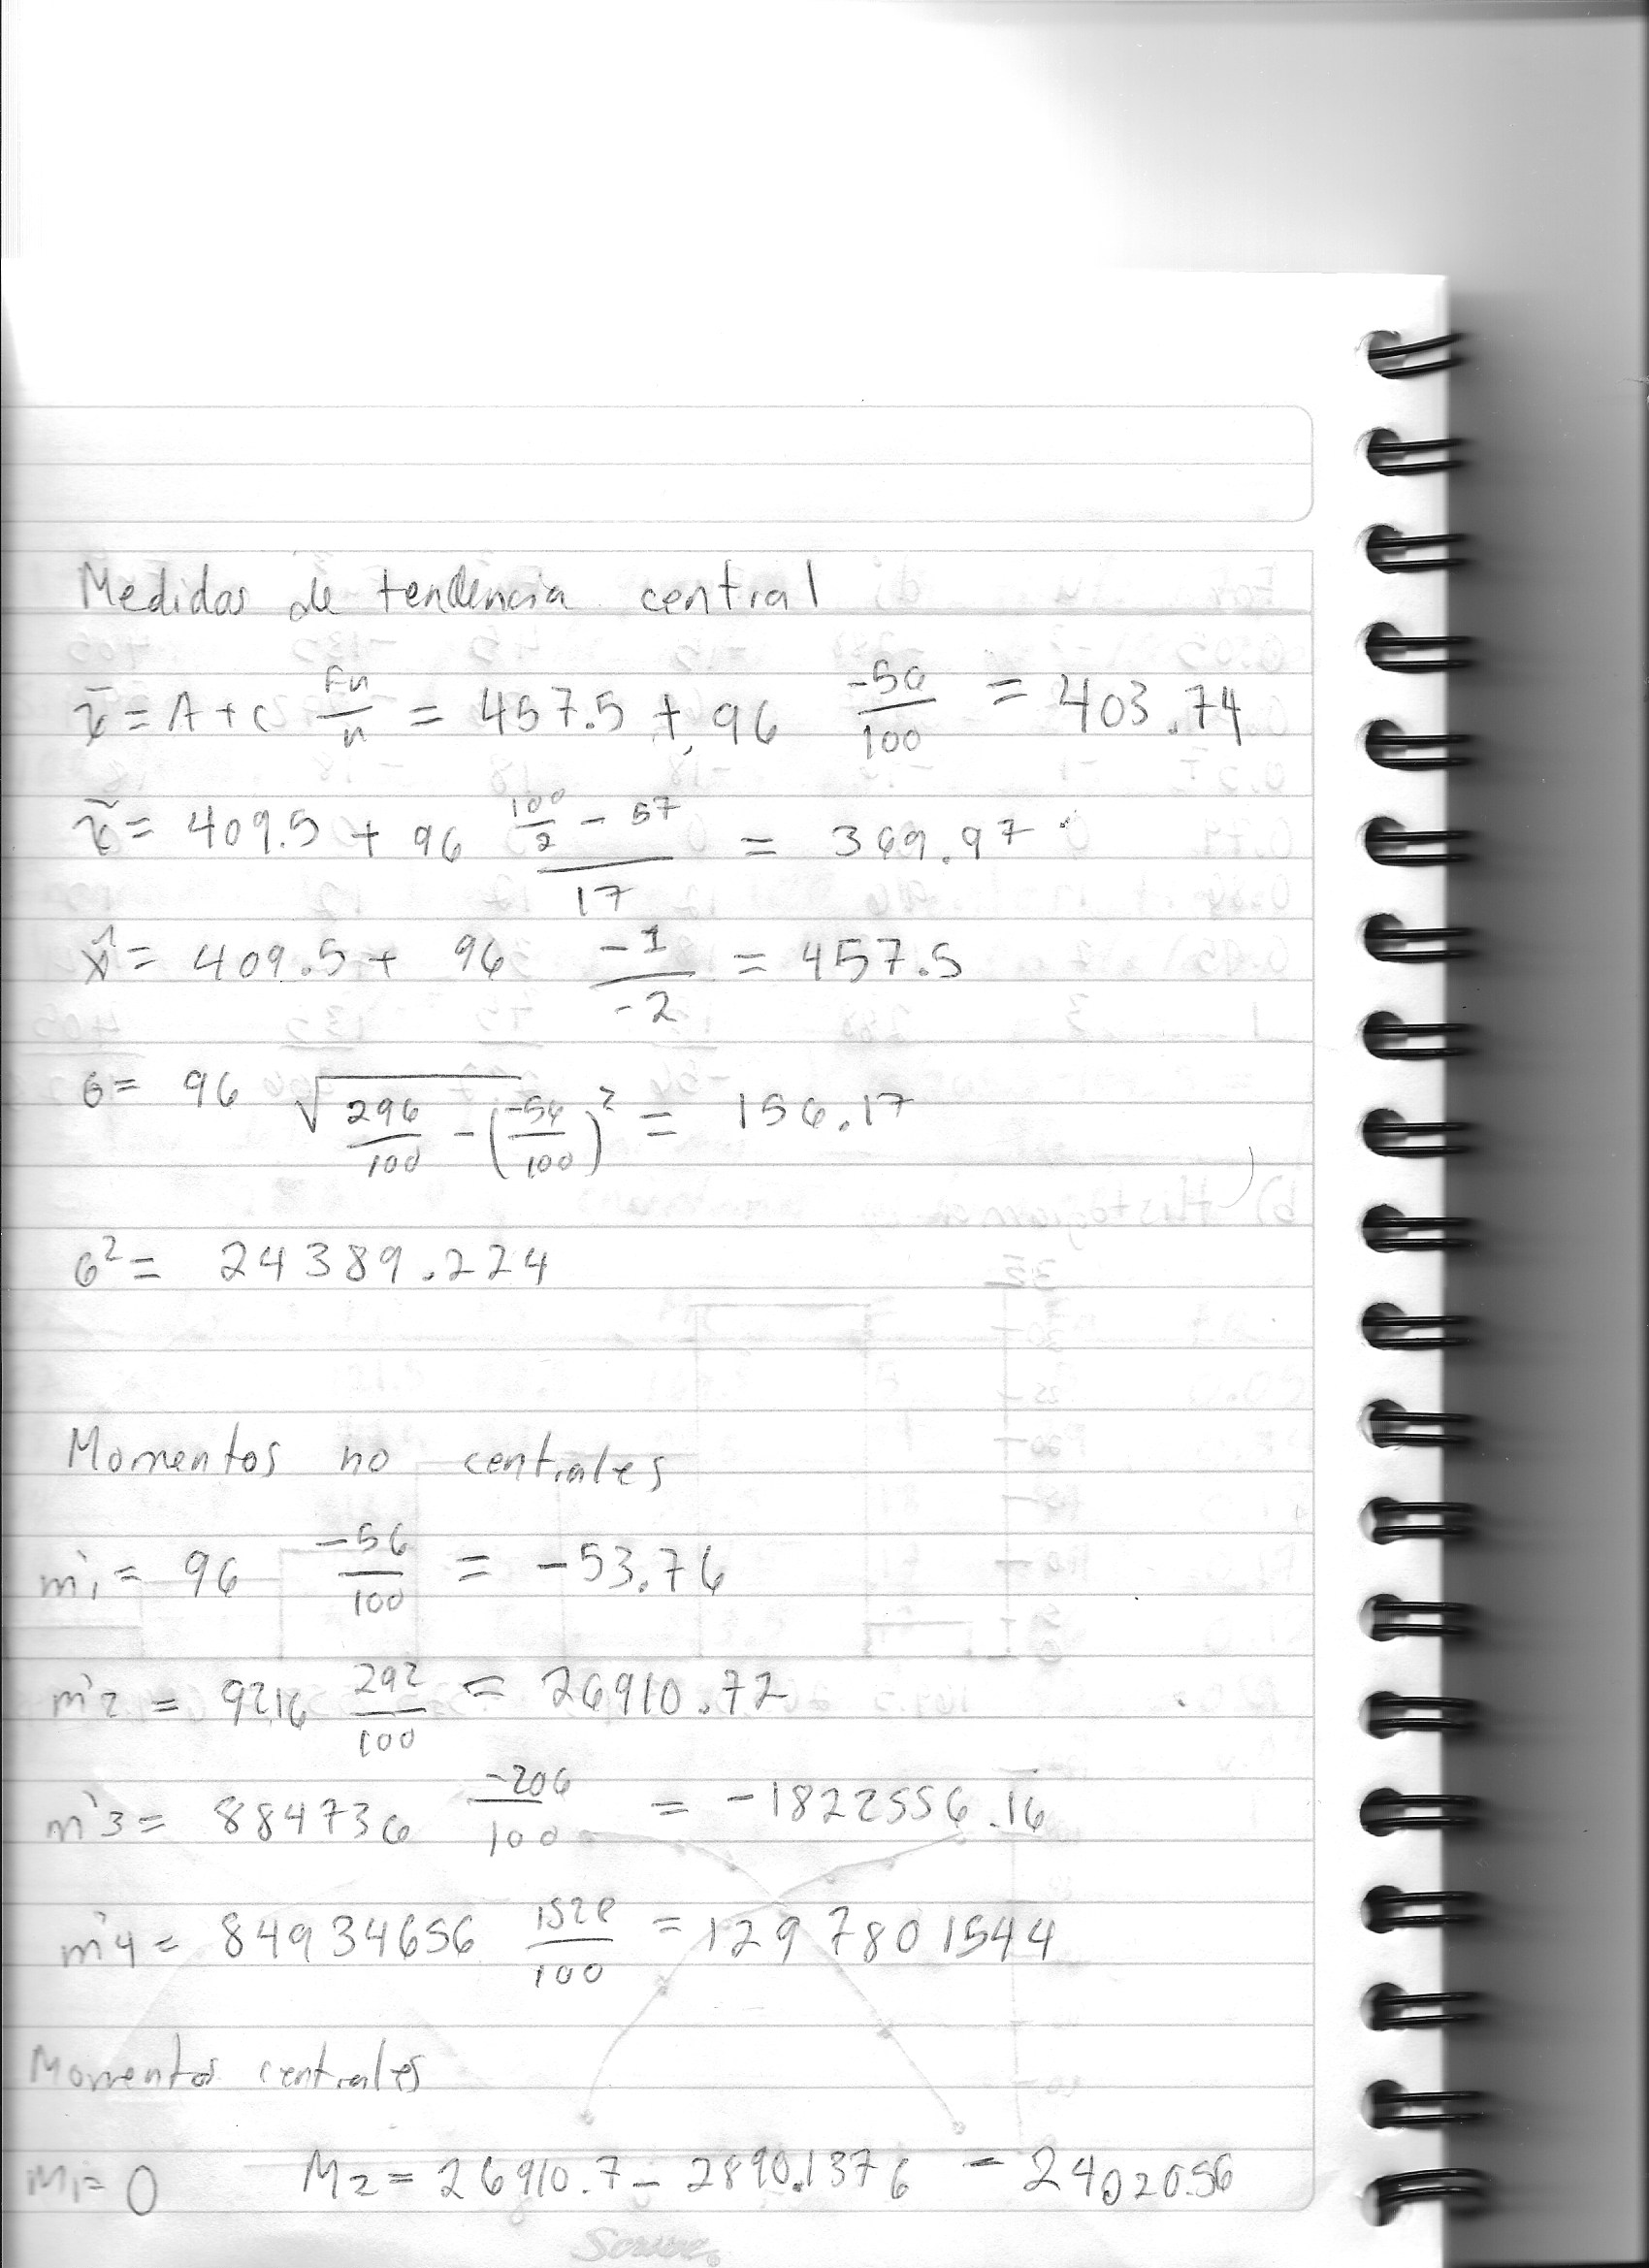 Medidas de tendencia central
x̄ = A + c Fu/n = 457.5 + 96 -56/100 = 403.74
x̃ = 409.5 + 96 (100/2 - 57)/17 = 369.97
x̂ = 409.5 + 96 -1/-2 = 457.5
σ = 96 √(296/100 - (-56/100)² = 156.17
σ² = 24389.224
Momentos no centrales
m'1 = 96 -56/100 = -53.76
m'2 = 9216 292/100 = 26910.72
m'3 = 884736 -206/100 = -1822556.16
m'4 = 84934656 1528/100 = 1297801544
Momentos centrales
M1 = 0 M2 = 26910.7 - 2890.1376 = 24020.56
Scribe